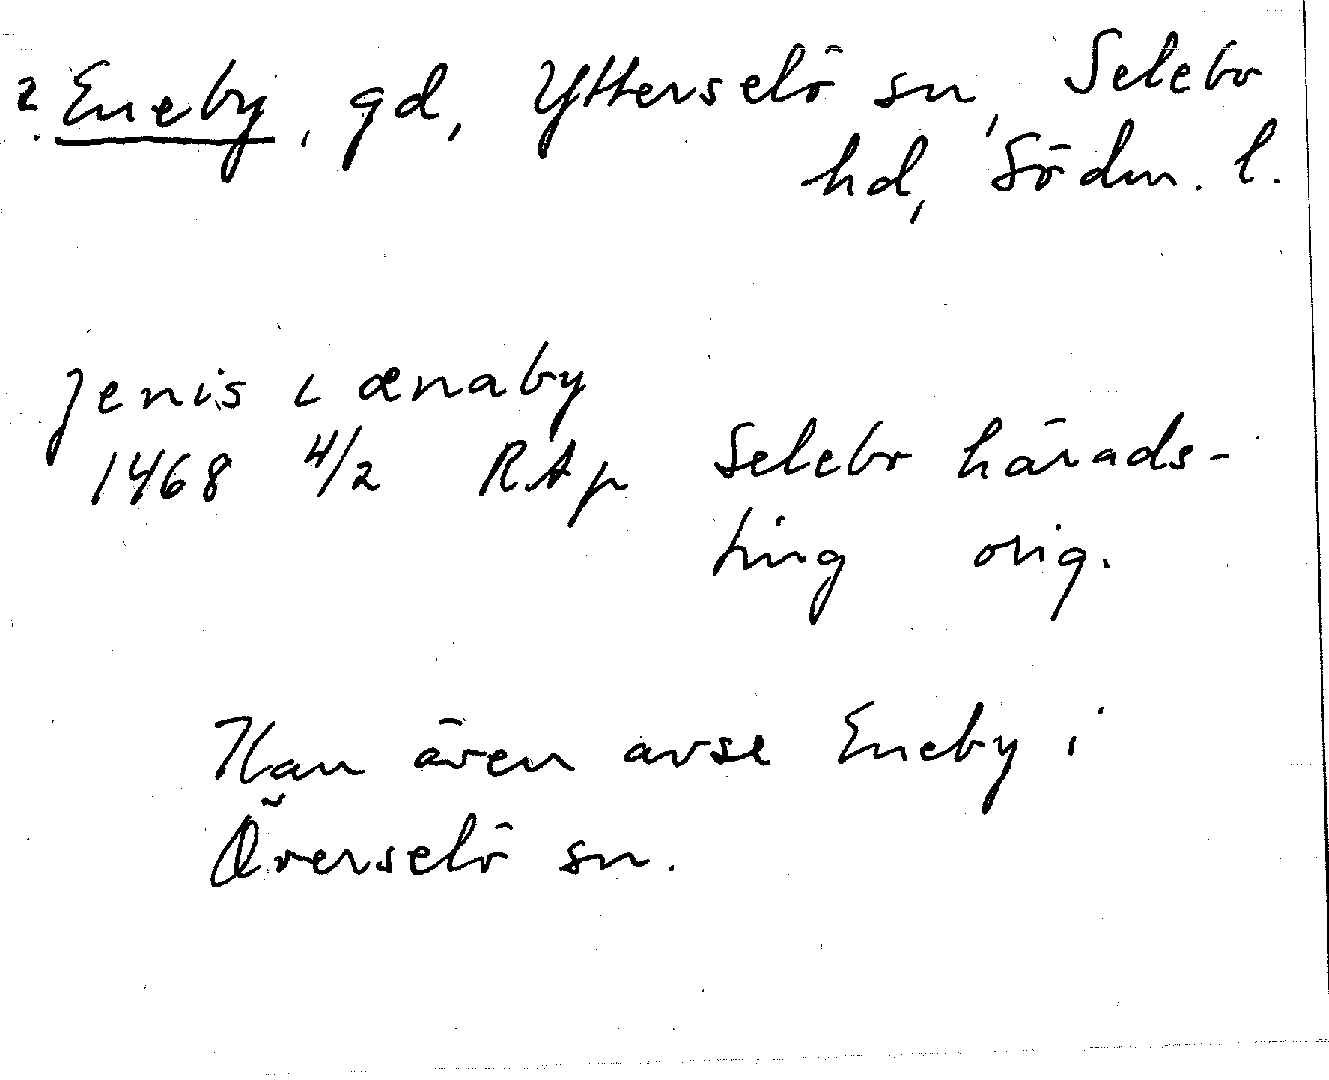 2. Eneby, gd, Ytterselö sn, Selebo
hd, Södm. l.
Jenis i ænaby
1468 4/2 RAp Selebo härads-
ting orig.
Kan även avse Eneby i
Överselö sn.